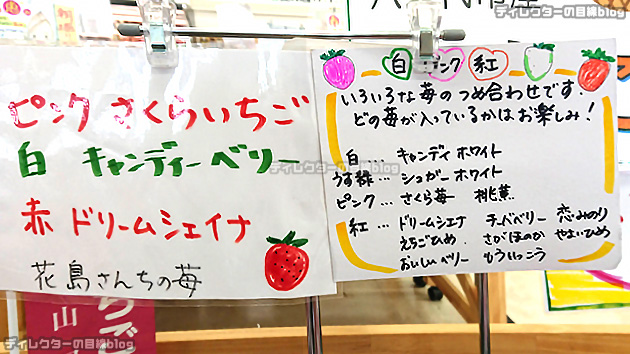 ディレクターの目線blog
ピンク さくらいちご
白 キャンディーベリー
赤 ドリームシェイナ
花島さんちの苺
白 ピンク 紅
いろいろな苺のつめ合わせです。
どの苺が入っているかはお楽しみ!
白… キャンディ ホワイト
うす緑… シュガー ホワイト
ピンク… さくら苺 桃薫
紅 … ドリームシエナ チーベベリー 恋みのり
えちごひめ さがほのか やよいひめ
おいしいベリー もういっこう
ディレクターの目線blog
ディレクターの目線blog
山
ディレクターの目線blog
ディレクターの目線blog